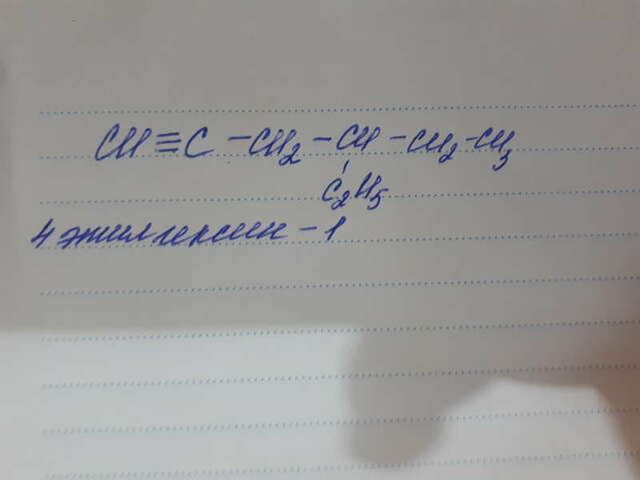 CH≡C–CH₂–CH–CH₂–CH₃
C₂H₅
4 этилгексин–1